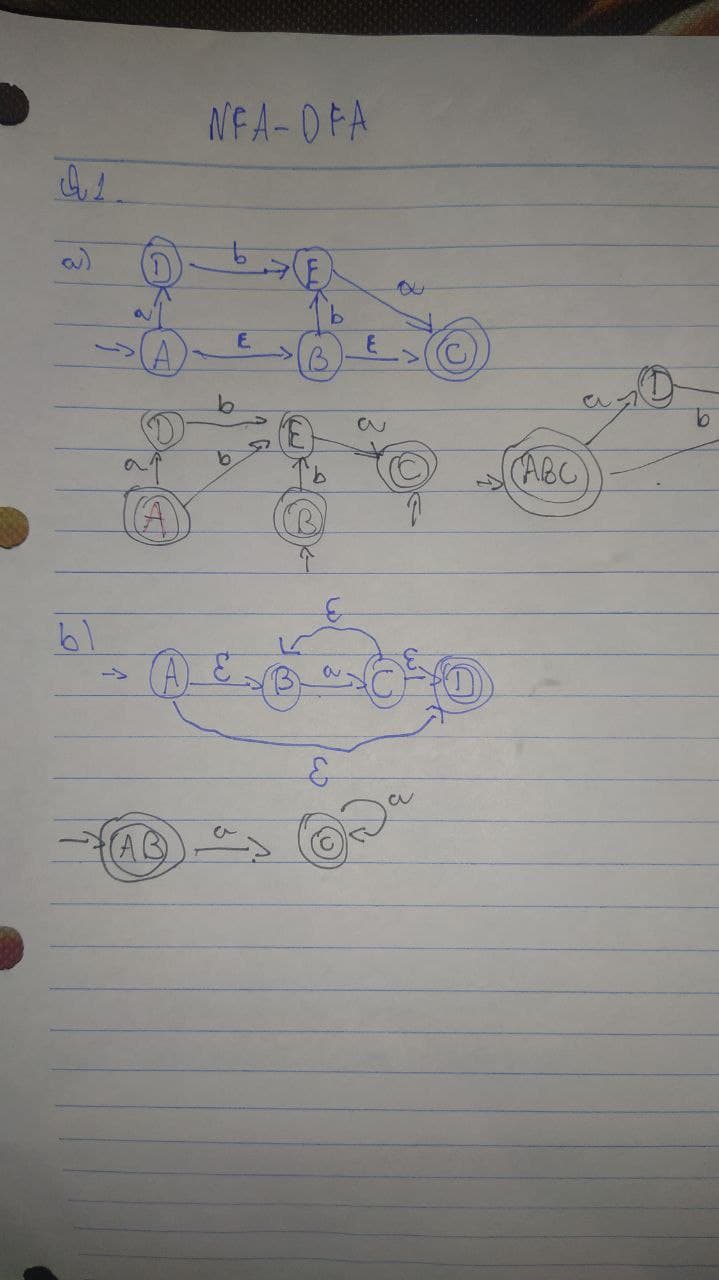 NFA-DFA
Q1.
a) D b E a
a b
A ε B ε C
D b E a C a D b
a b b
A B ABC
b) ε
A ε B a C ε D
ε
AB a C a